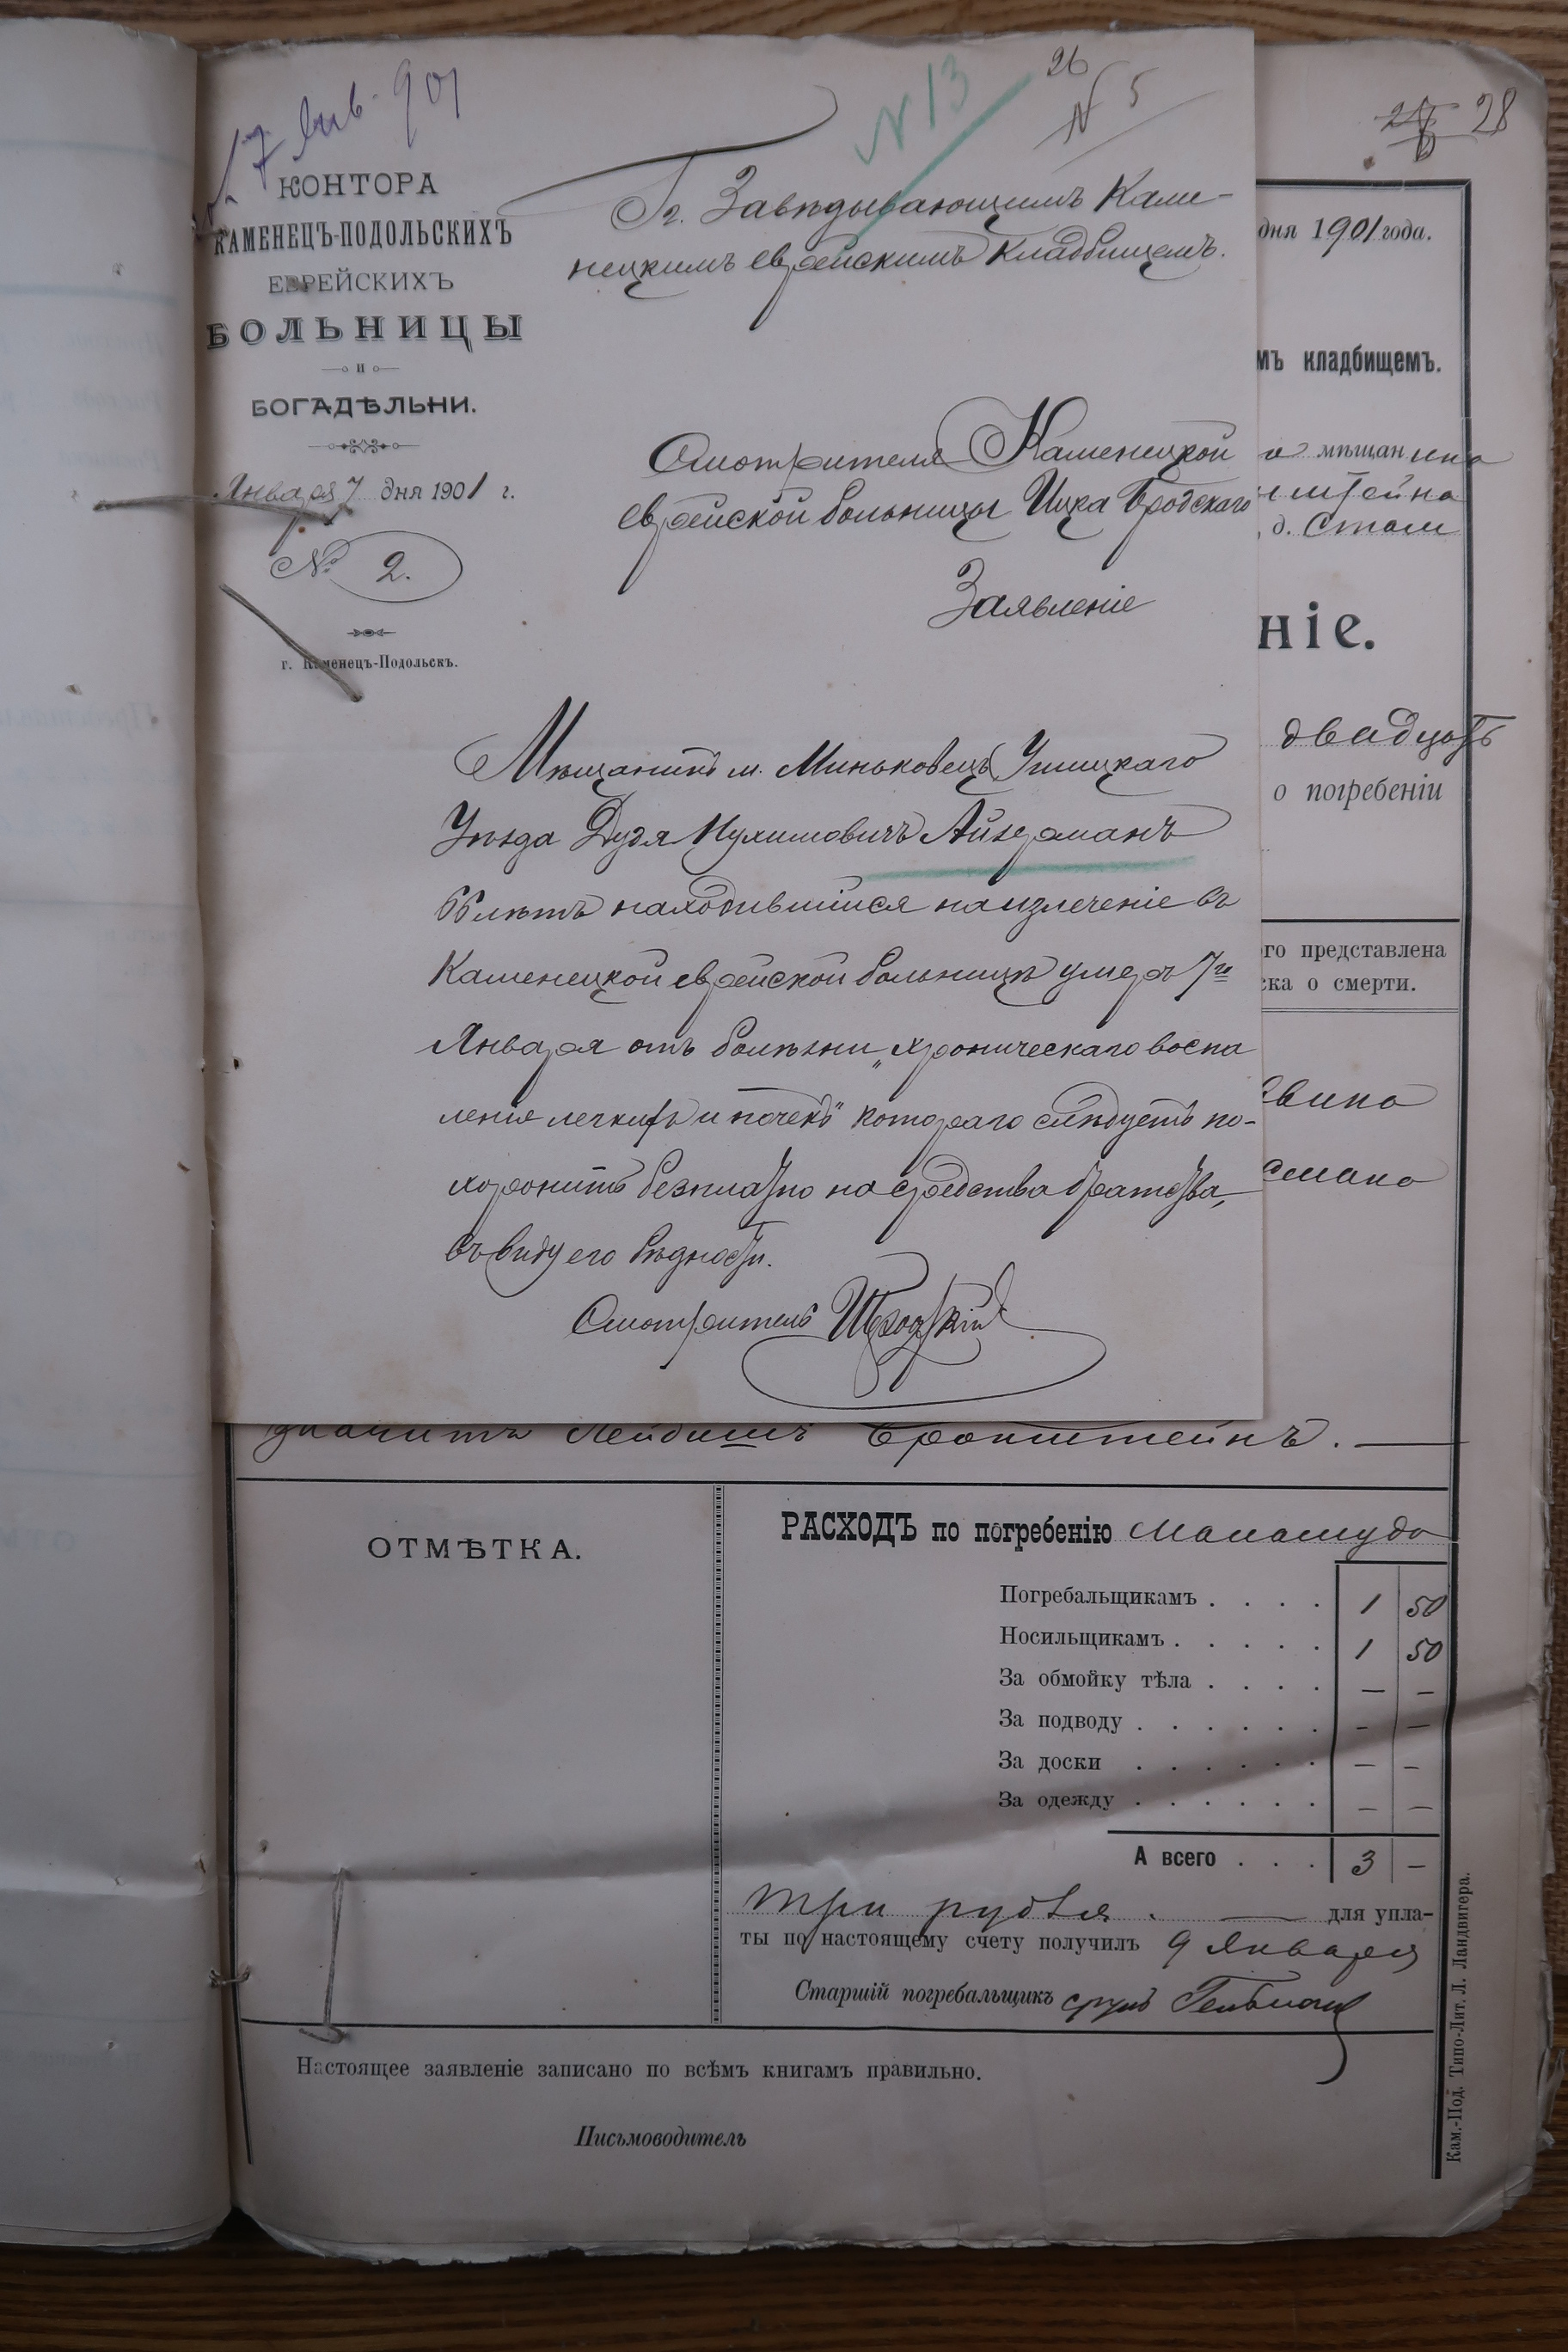 7 Янв. 901
N 13
26
N 5
КОНТОРА
КАМЕНЕЦЪ-ПОДОЛЬСКИХЪ
ЕВРЕЙСКИХЪ
БОЛЬНИЦЫ
И
БОГАДѢЛЬНИ.
Января 7 дня 1901 г.
№ 2.
г. Каменецъ-Подольскъ.
Гг. Завѣдывающимъ Каме-
нецкимъ еврейскимъ кладбищемъ.
Смотрителя Каменецкой
еврейской больницы Ицка Бродскаго
Заявленіе
Мѣщанинъ м. Миньковецъ Ушицкаго
Уѣзда Дудя Нухимовичъ Айзерманъ
66 лѣтъ находившійся на излеченіе въ
Каменецкой еврейской больницѣ умеръ 7го
Января отъ болѣзни „хроническаго воспа
леніе легкихъ и почекъ" котораго слѣдуетъ по-
хоронить безплатно на средства братства,
въ виду его бѣдности.
Смотритель ИБродскій
28
дня 1901 года.
мъ кладбищемъ.
а мѣщанина
нштейна
д. Стами
ніе.
двадцать
о погребеніи
го представлена
ска о смерти.
Лейбишъ Бронштейнъ.
ОТМѢТКА.
РАСХОДЪ по погребенію Манашуда
Погребальщикамъ . . . . 1 50
Носильщикамъ . . . . . 1 50
За обмойку тѣла . . . . — —
За подводу . . . . . . - —
За доски . . . . . . — —
За одежду . . . . . . — —
А всего . . . 3 —
три рубля. — для упла-
ты по настоящему счету получилъ 9 Января
Старшій погребальщикъ сруль Гельман
Настоящее заявленіе записано по всѣмъ книгамъ правильно.
Письмоводитель
Кам.-Под. Типо-Лит. Л. Ландвигера.